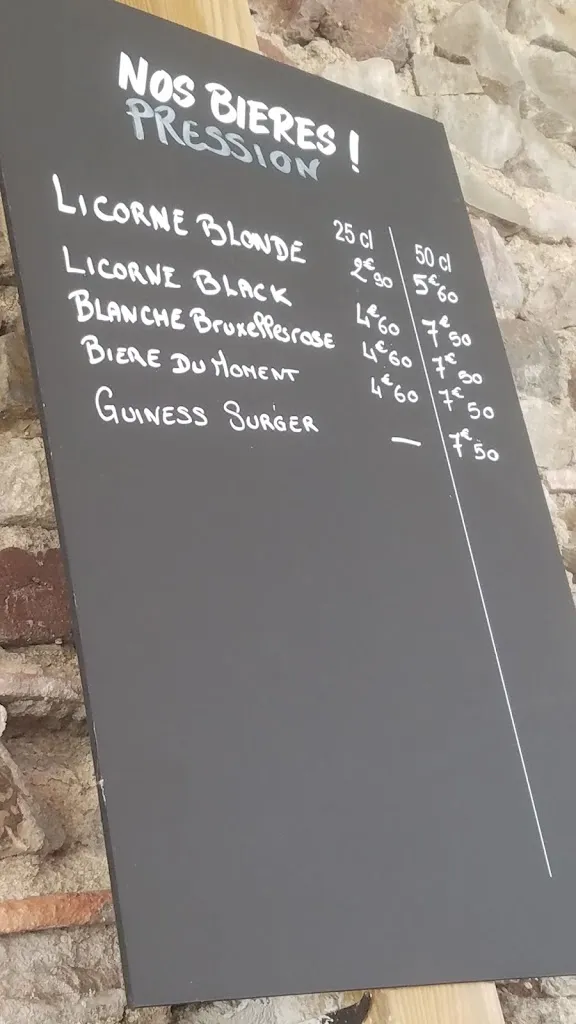 NOS BIERES !
PRESSION
25 cl 50 cl
LICORNE BLONDE 2€90 5€60
LICORNE BLACK 4€60 7€50
BLANCHE Bruxellesrose 4€60 7€50
BIERE DU MOMENT 4€60 7€50
GUINESS SURGER — 7€50